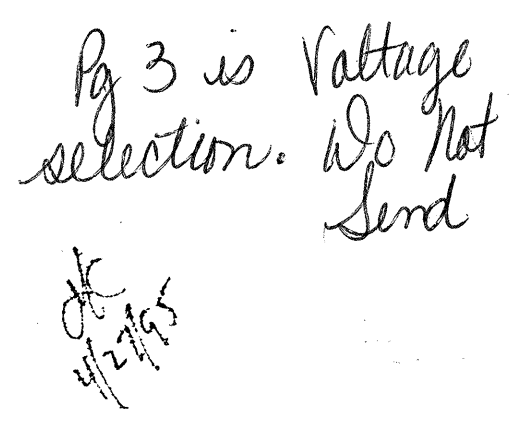 Pg 3 is Voltage
selection. Do Not
Send
JK
4/27/95